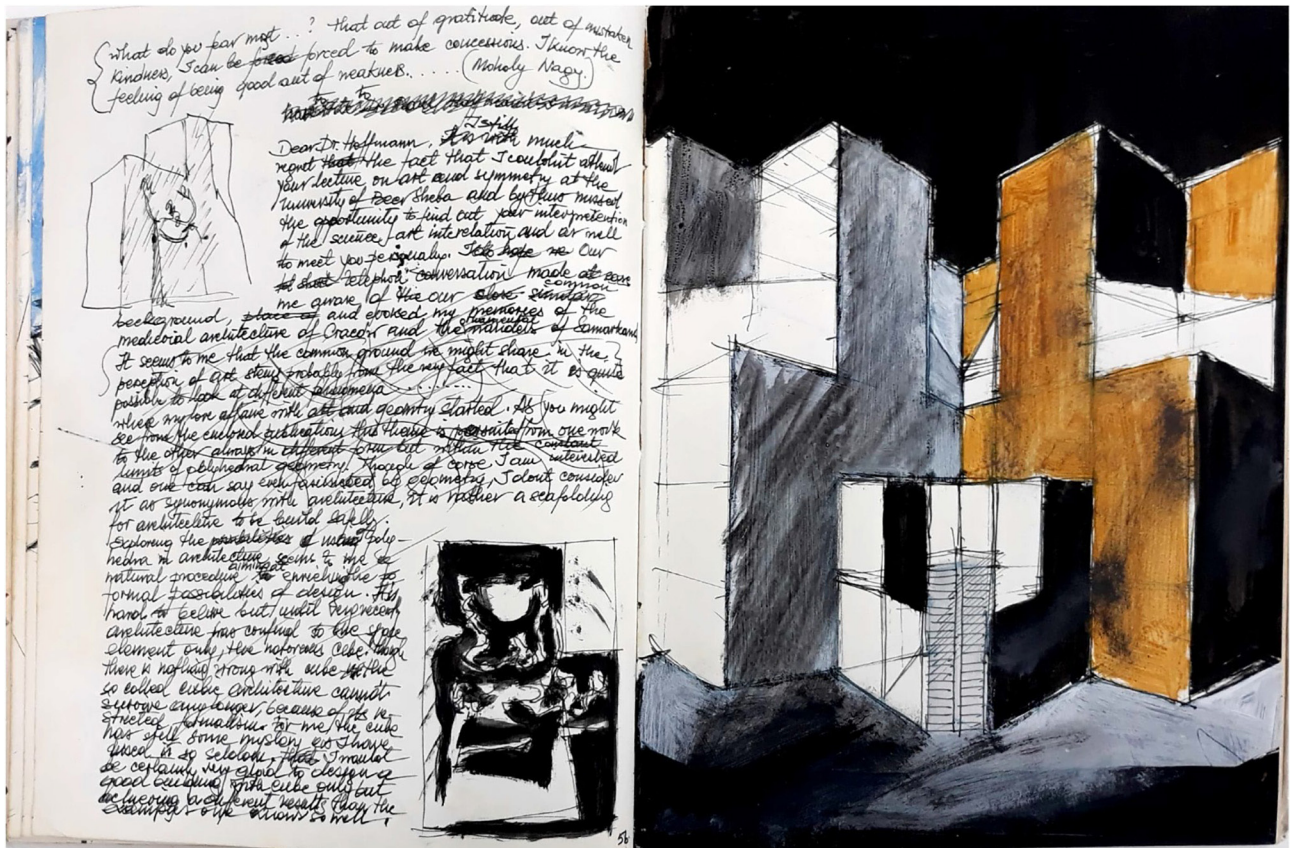 What do you fear most...? That out of gratitude, out of mistaken
kindness, I can be forced forced to make concessions. I know the
feeling of being good out of weakness...... (Moholy Nagy.)
to to
I still
Dear Dr. Hoffmann, It is with much
regret that the fact that I couldn't attend
your lecture on art and symmetry at the
university of Beer Sheba and by thus missed
the opportunity to find out your interpretation
of the science/art interelation and as well
to meet you personaly. Our
telephone conversation made
common
me aware of the our close similar
background, and evoked my memories of the
ornamental
medieoval architecture of Cracow and the of Samarkand,
It seems to me that the common ground we might share in the
perception of art stems probably from the very fact that it is quite
possible to look at different phenomena ..........
where my love affaire with art and geometry started. As you might
see from the enclosed publications this theme is from one work
to the other always in different form but within the constant
limits of polyhedral geometry. Though of corse I am interested
and one can say even fascinated by geometry, I dont consider
it as synonymous with architecture, it is rather a scafolding
for architecture to be build safely.
Exploring the possibilities of using poly-
hedra in architecture seems to me a
aiming at
natural procedure to enriching the
formal possibilities of design. It is
hard to belive but until very recently
architecture was confined to one shape
element only, the notoreous cube, though
there is nothing wrong with cube the
so called cubic architecture cannot
survive any longer, because of its re-
stricted formalism. For me the cube
has still some mystery as I have
used it so seldom, that I would
be certainly very glad to design a
good building with cube only but
achieving a different result than the
examples one knows so well.
56